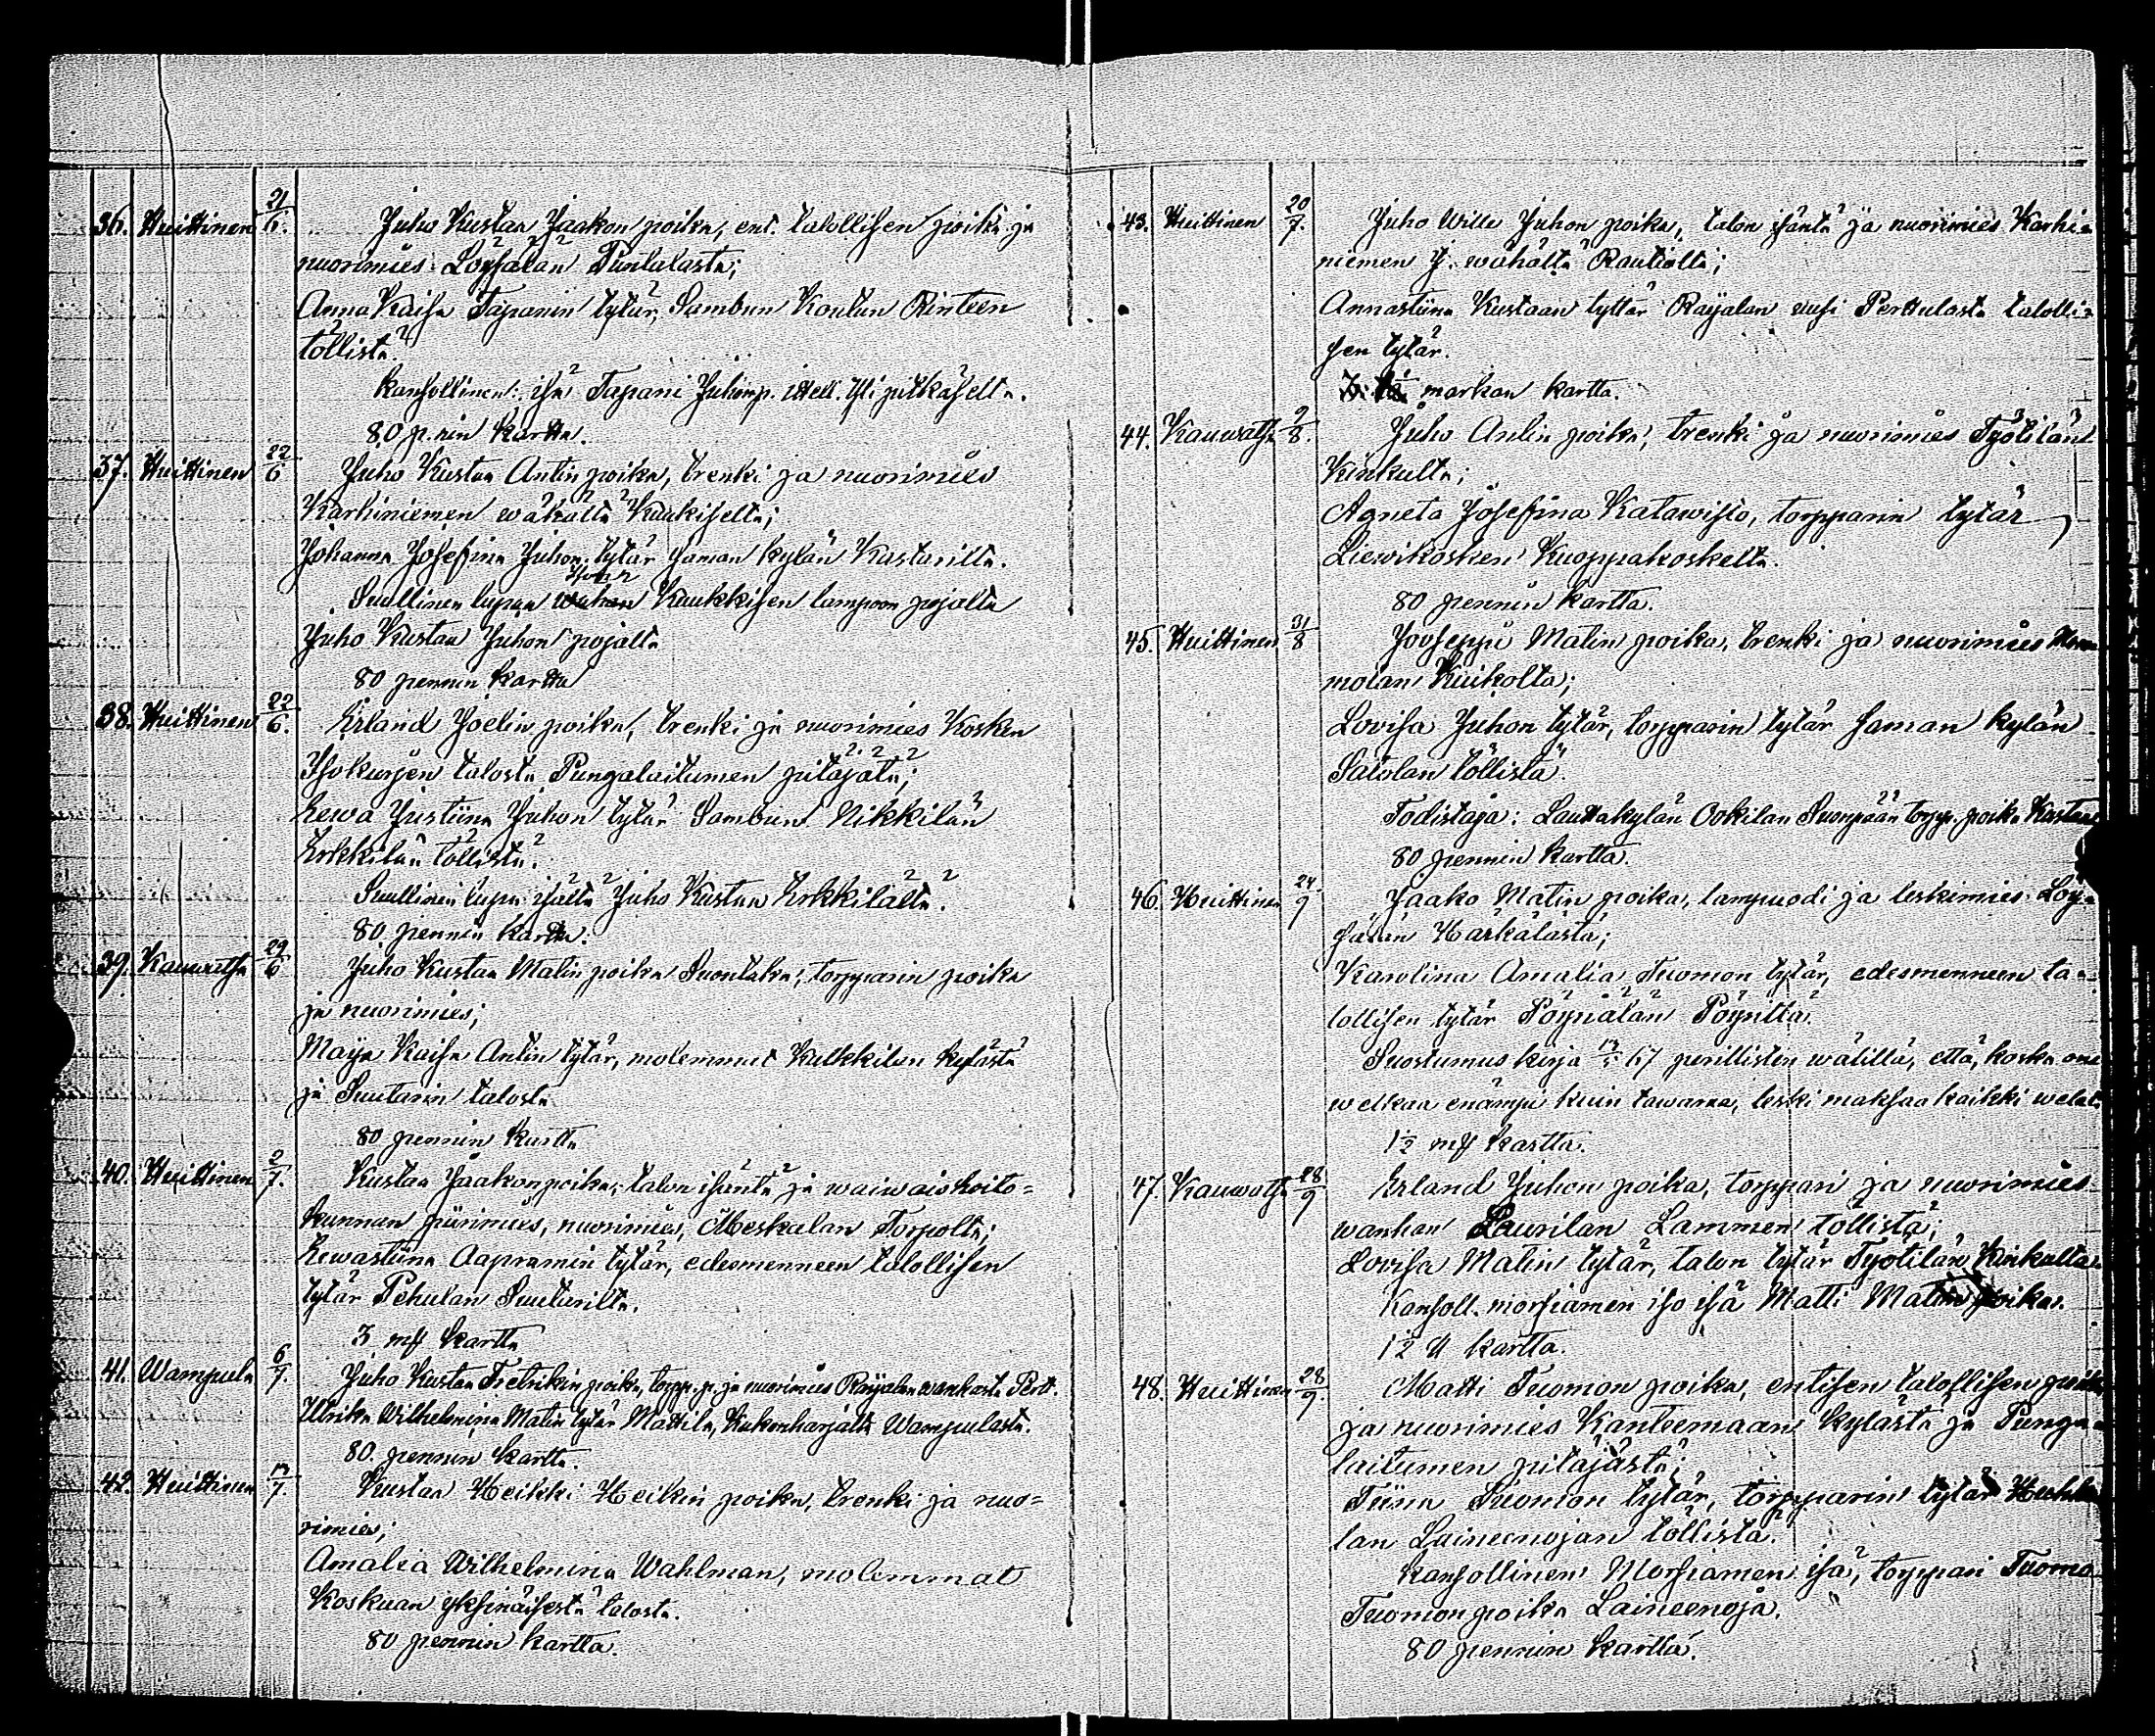 36. Huittinen 21/6. Juho Kustaa Jaakon poika, ent. talollisen poika ja
nuorimies Löysälän Puntalasta;
Anna Kaisa Tapanin tytär, Sambun Koutun Rinteen
töllistä.
kansollinen: isä Tapani Juhonp. itell. Yli pitkäseltä.
80 p.nin kartta.
37. Huittinen 22/6 Juho Kustaa Antin poika, trenki ja nuorimies
Karhiniemen wähältä Kaukiselta;
Johanna Josefina Juhon tytär saman kylän Kustarilta.
Suullinen lupaa wähän Kaukkisen lampoon pojalta
Juho Kustaa Juhon pojalta
80 pennin kartta
38. Huittinen 22/6. Erland Joelin poika, trenki ja nuorimies Kosken
Isokurjen talosta Pungalaitumen pitäjätä;
Eewa Justiina Juhon tytär Sambun Nikkilän
Erkkilän töllistä.
Suullinen lupa isältä Juho Kustaa Erkkilältä.
80 pennin kartta.
39. Kauwatsa 29/6 Juho Kustaa Matin poika Suontaka, torpparin poika
ja nuorimies;
Maija Kaisa Antin tytär, molemmat Kulkkilan kylästä
ja Suutarin talosta
80 pennin kartta
40. Huittinen 2/7. Kustaa Jaakon poika, talon isäntä ja waiwaishoito=
kunnan piirimies, nuorimies, Meskalan Torpolta;
Eewastiina Aapramin tytär, edesmenneen talollisen
tytär Pehulan Suutarilta.
3 mk kartta
41. Wampula 6/7. Juho Kustaa Fretrikin poika, torpp. p. ja nuorimies Raijalan wanhasta Pert.
Ulrika Wilhelmina Matin tytär Mattila, Kukonharjalta Wampulasta.
80. pennin kartta.
42. Huittinen /7. Kustaa Heikki Heikin poika, trenki ja nuo=
rimies;
Amalia Wilhelmina Wahlman, molemmat
Koskuan yksinäisestä talosta.
80 pennin kartta.
43. Huittinen 20/7. Juho Wille Juhon poika, talon isäntä ja nuorimies Karhi=
niemen J. wähältä Rautiolta;
Annastiina Kustaan tyttär Raijalan uusi Perttulasta talolli=
sen tytär.
markan kartta.
44. Kauwatsa 9/8. Juho Antin poika, trenki ja nuorimies Työtilän
Kinkulta;
Agneta Josefina Katawisto, torpparin tytär
Liewikosken Kuoppakoskelta.
80 pennin kartta.
45. Huittinen 31/8 Jooseppi Matin poika, trenki ja nuorimies
molan Kiukolta;
Lovisa Juhon tytär, torpparin tytär saman kylän
Salolan töllistä.
Todistaja: Lauttakylän Ookilan Suonpään torpp. poika Kustaa
80 pennin kartta.
46. Huittinen 24/9 Jaako Matin poika, lampuodi ja leskimies Löy=
sälän Härkälästä;
Karolina Amalia Tuomon tytär, edesmenneen ta=
lollisen tytär Pöyriälän Pöyriltä.
Suostumus kirja 67 perillisten wälillä, että, koska
welkaa enämpi kuin tawaraa, leski maksaa kaikki welat.
1½ mk kartta.
47. Kauwatsa 28/9 Erland Juhon poika, torppari ja nuorimies
wanhan Laurilan Lammen töllistä;
Lovisa Matin tytär, talon tytär Työtilän Kinkulta
Kansoll. morsiamen iso isä Matti Matin poika.
1½ kartta.
48. Huittinen 28/9. Matti Tuomon poika, entisen talollisen poika
ja nuorimies Kanteemaan kylästä ja Punga=
laitumen pitäjästä;
Tiina Tuomon tytär, torpparin tytär Huhta
lan Laineenojan töllistä.
kansollinen Morsiamen isä, torppari Tuomo
Tuomon poika Laineenoja.
80 pennin kartta.